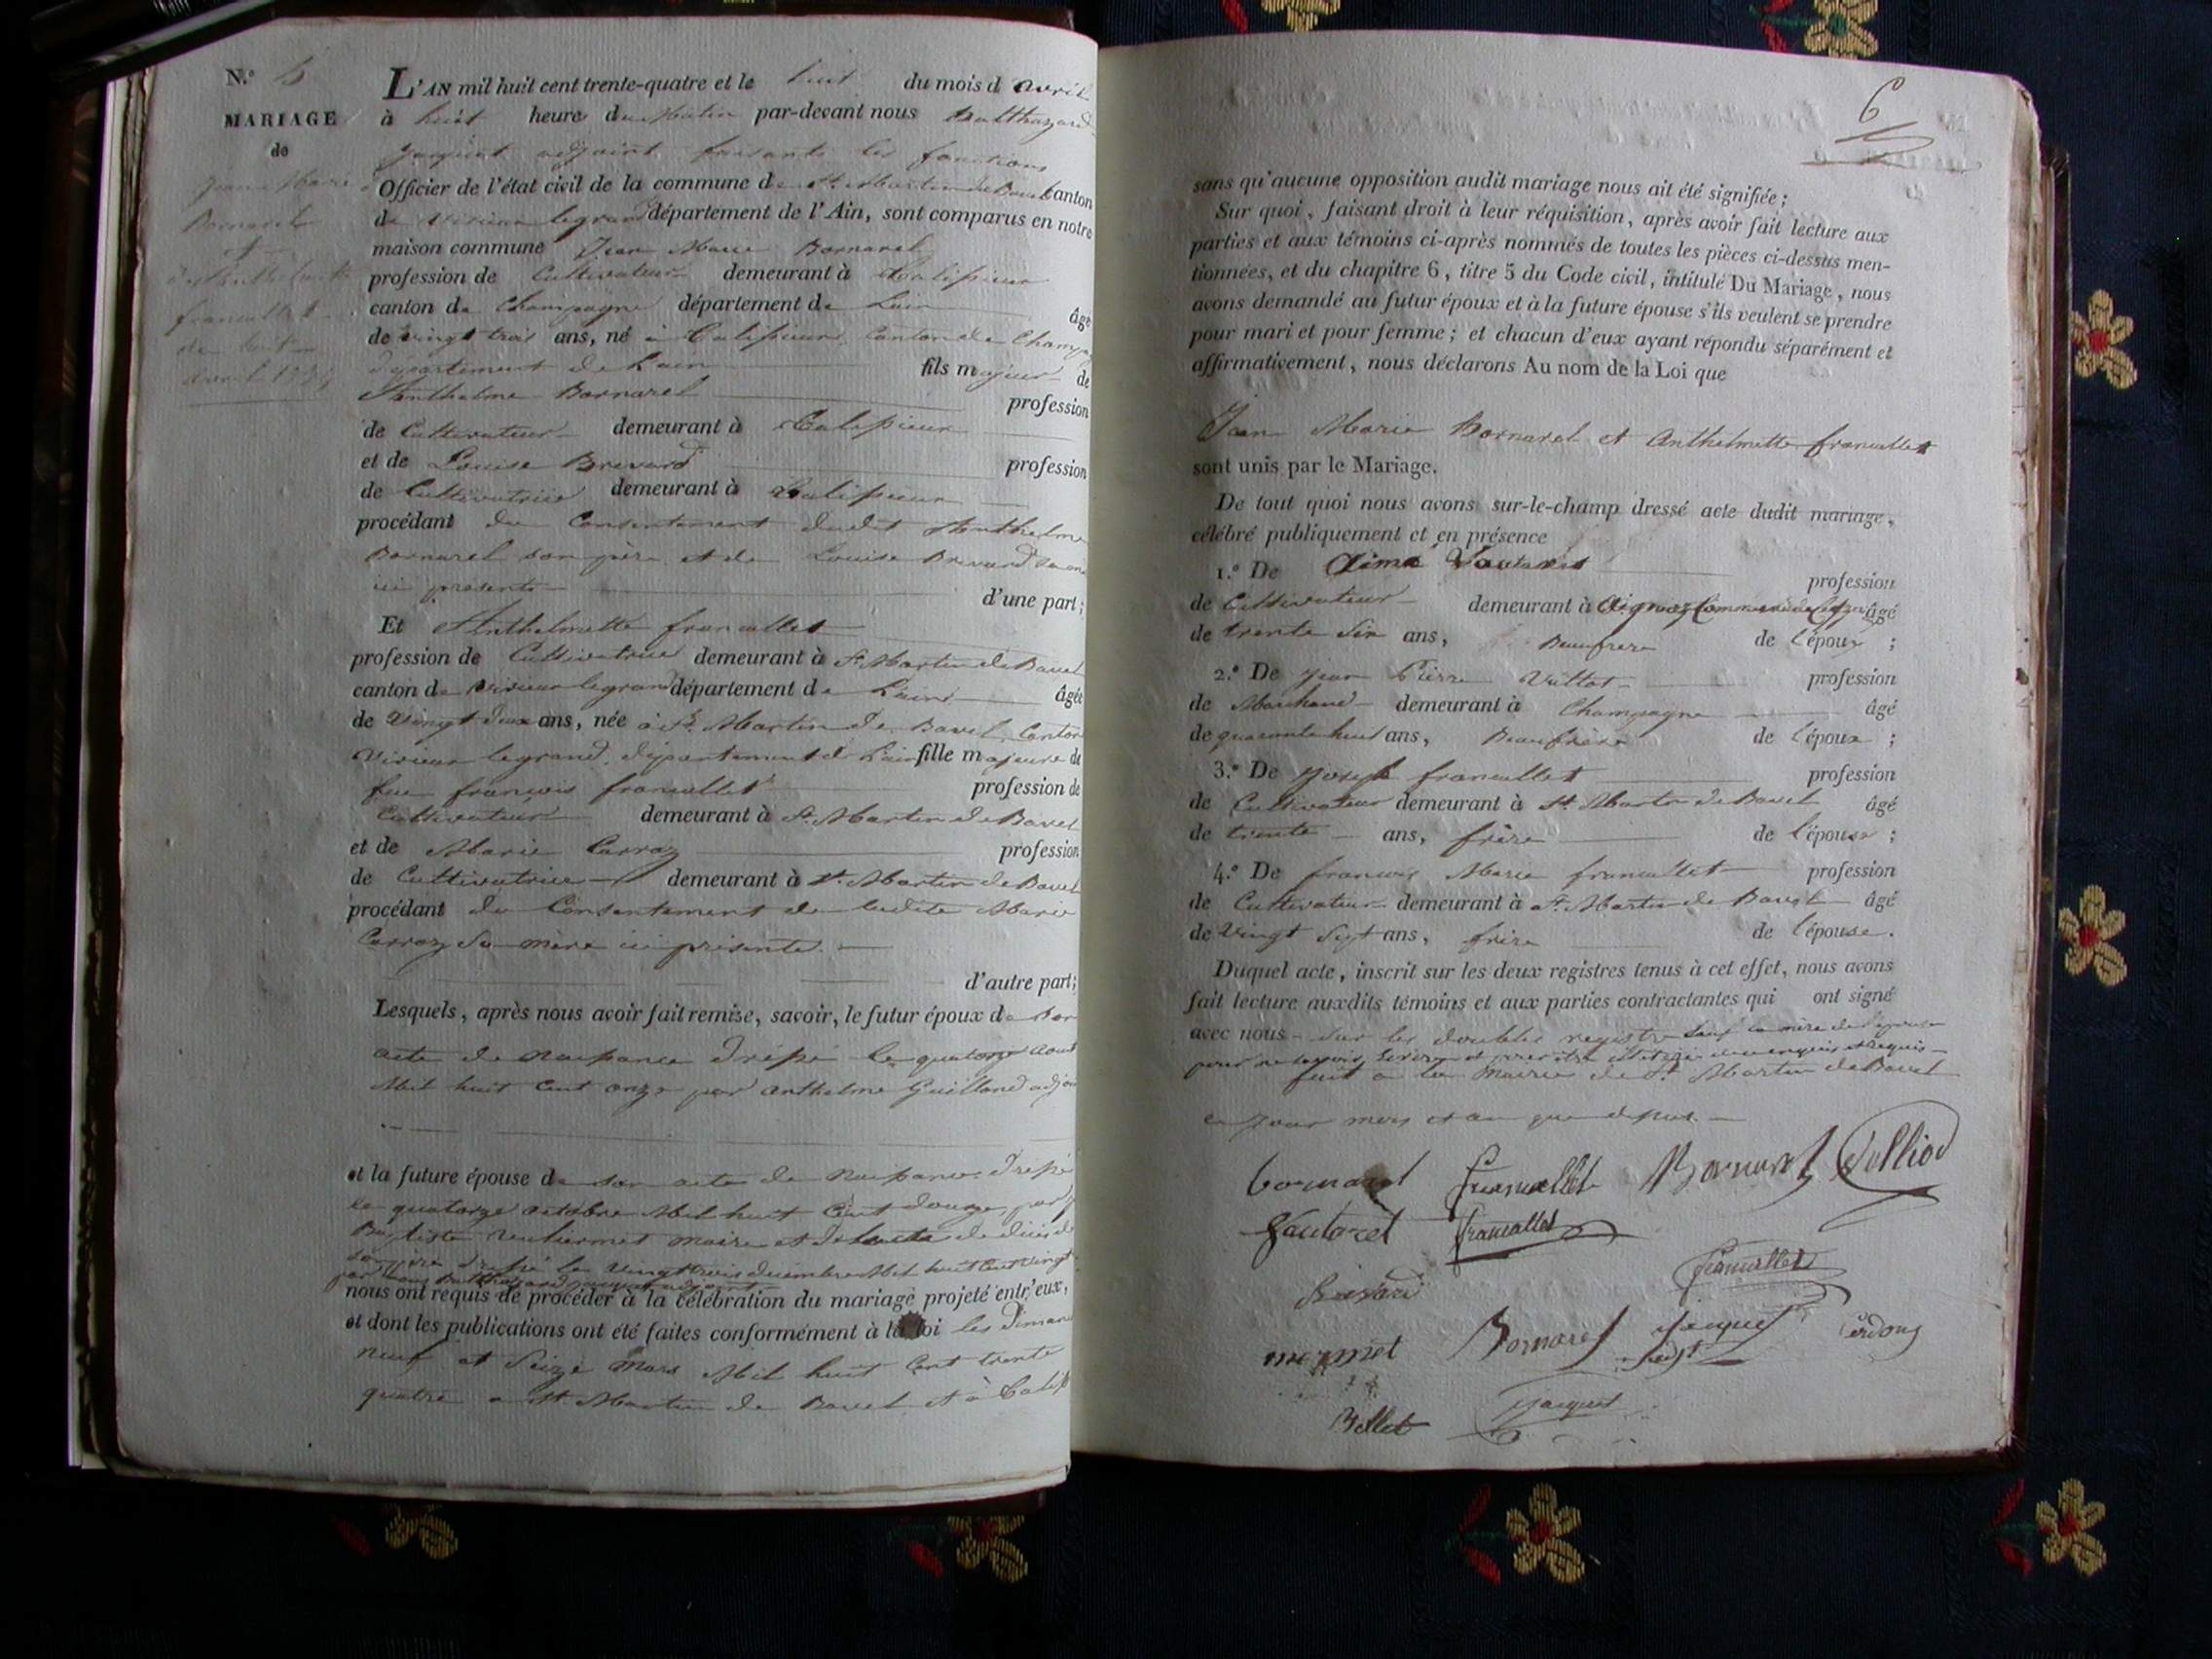 N.° 5
MARIAGE
de
Jean Marie
Bornarel
et
d'Anthelmette
francallet
du huit
avril 1834
L'AN mil huit cent trente-quatre et le huit du mois d avril
à huit heures du Matin par-devant nous Balthazard
Jacquet adjoint faisant les fonctions
d'Officier de l'état civil de la commune de St. Martin de Bavel canton
de Virieu legrand département de l'Ain, sont comparus en notre
maison commune Jean Marie Bornarel
profession de Cultivateur demeurant à
canton de Champagne département de Lain âgé
de vingt trois ans, né à canton de Champagne
département de Lain fils majeur de
Anthelme Bornarel profession
de Cultivateur demeurant à
et de Louise Brevard profession
de Cultivatrice demeurant à
procédant du Consentement dudit Anthelme
Bornarel son père et de Louise Brevard sa mère
ici presents d'une part;
Et Anthelmette francallet
profession de Cultivatrice demeurant à St. Martin de Bavel
canton de Virieu legrand département de Lain âgée
de vingt deux ans, née à St. Martin de Bavel Canton
Virieu legrand, département de Lain fille majeure de
feu françois francallet profession de
Cultivateur demeurant à St. Martin de Bavel
et de Marie Carraz profession
de Cultivatrice demeurant à St. Martin de Bavel
procédant du Consentement de ladite Marie
Carraz Sa mère ici présente.
d'autre part;
Lesquels, après nous avoir fait remise, savoir, le futur époux de son
acte de naissance drépé le quatorze aout
Mil huit Cent onze par anthelme Guilland adjoint
et la future épouse de son acte de naissance drépé
le quatorze octobre Mil huit Cent douze, par
Baptiste maire et de lacte de décès de
son père drépé le vingt trois decembre Mil huit Cent vingt
par nous Balthazard Jacquet adjoint
nous ont requis de procéder à la célébration du mariage projeté entr'eux,
et dont les publications ont été faites conformément à la loi les dimanches
neuf et Seize Mars Mil huit Cent trente
quatre a St. Martin de Bavel et à
6
sans qu'aucune opposition audit mariage nous ait été signifiée;
Sur quoi, faisant droit à leur réquisition, après avoir fait lecture aux
parties et aux témoins ci-après nommés de toutes les pièces ci-dessus men-
tionnées, et du chapitre 6, titre 5 du Code civil, intitulé Du Mariage, nous
avons demandé au futur époux et à la future épouse s'ils veulent se prendre
pour mari et pour femme; et chacun d'eux ayant répondu séparément et
affirmativement, nous déclarons Au nom de la Loi que
Jean Marie Bornarel et Anthelmette francallet
sont unis par le Mariage.
De tout quoi nous avons sur-le-champ dressé acte dudit mariage,
célébré publiquement et en présence
1.° De Aimé Vautaret profession
de Cultivateur demeurant à Commune de âgé
de trente Six ans, Beaufrere de l'époux ;
2.° De Jean Pierre profession
de Marchand demeurant à Champagne âgé
de quarante huit ans, Beaufrère de l'époux ;
3.° De Joseph francallet profession
de Cultivateur demeurant à St. Martin de Bavel âgé
de trente ans, frère de l'épouse ;
4.° De francois Marie francallet profession
de Cultivateur demeurant à St. Martin de Bavel âgé
de Vingt Sept ans, frère de l'épouse.
Duquel acte, inscrit sur les deux registres tenus à cet effet, nous avons
fait lecture auxdits témoins et aux parties contractantes qui ont signé
avec nous sur les doubles registre Sauf la mère de l'épouse
pour ne Savoir écrire de ce enquis et requis
fait a la Mairie de St. Martin de Bavel
les jour mois et an que dessus.
bornarel francallet Bornarel
Vautaret francallet
francallet
Brevard
mermet Bornarel Jacquet Cerdons
adjt
Bellet Jacquet